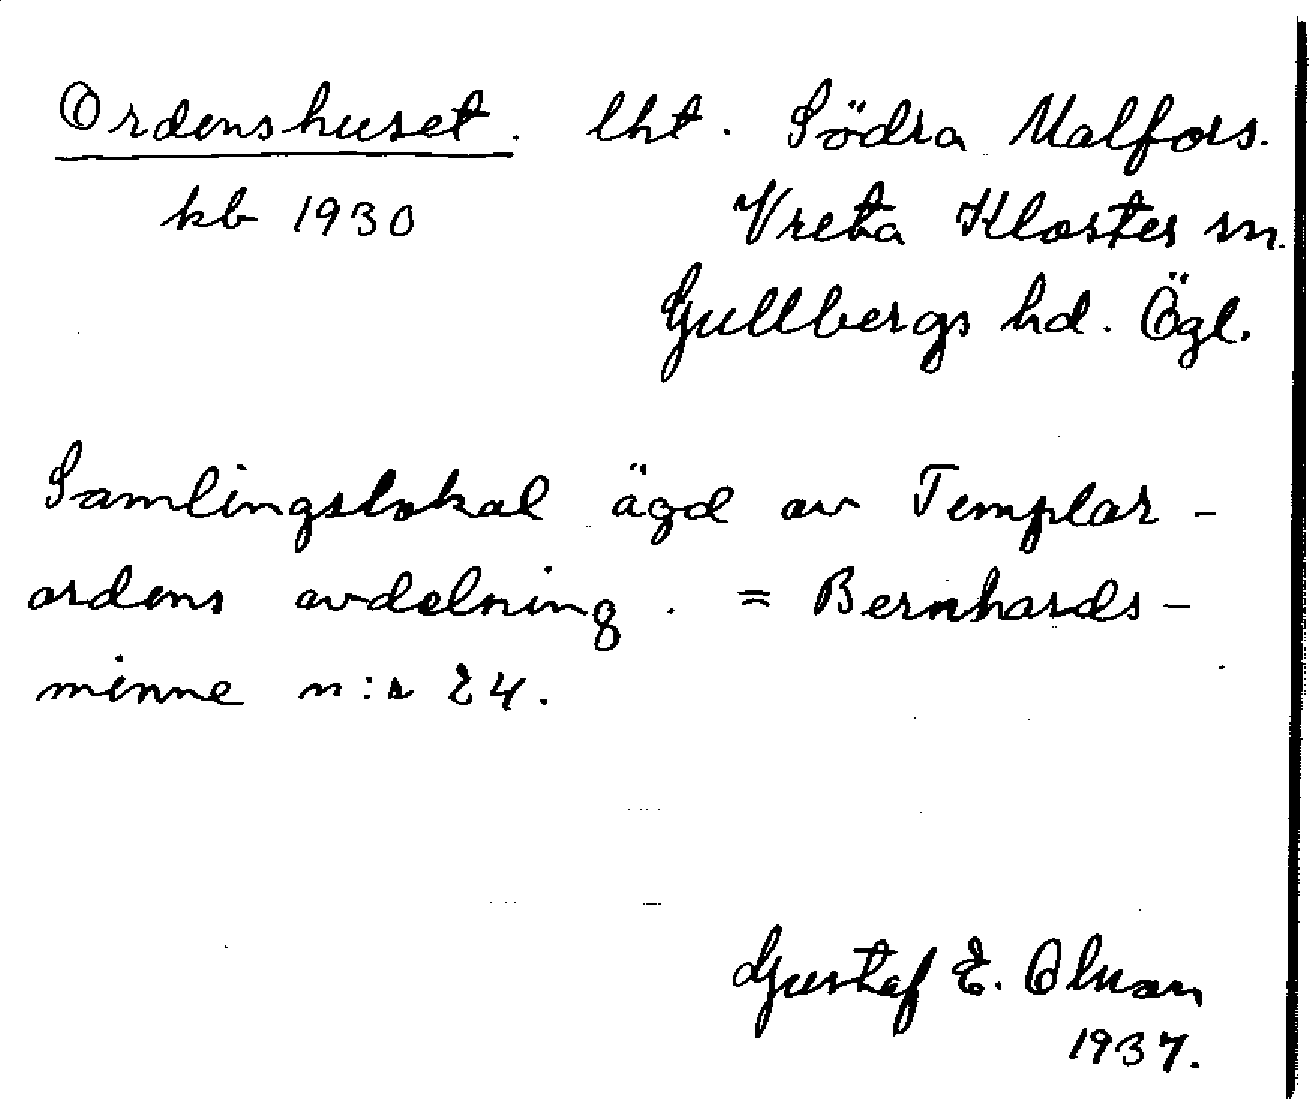 Ordenshuset. lht. Södra Malfors.
kb 1930 Vreta Kloster sn.
Gullbergs hd. Ögl.
Samlingslokal ägd av Templar-
ordens avdelning. = Bernhards-
minne n:r 24.
Gustaf E. Olsson
1937.